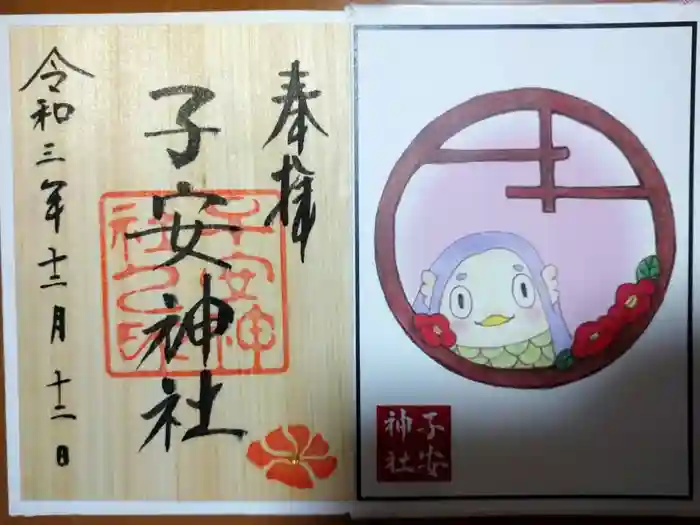 奉拝
子安神社
子安神社之印
令和三年十二月十二日
子安
神社